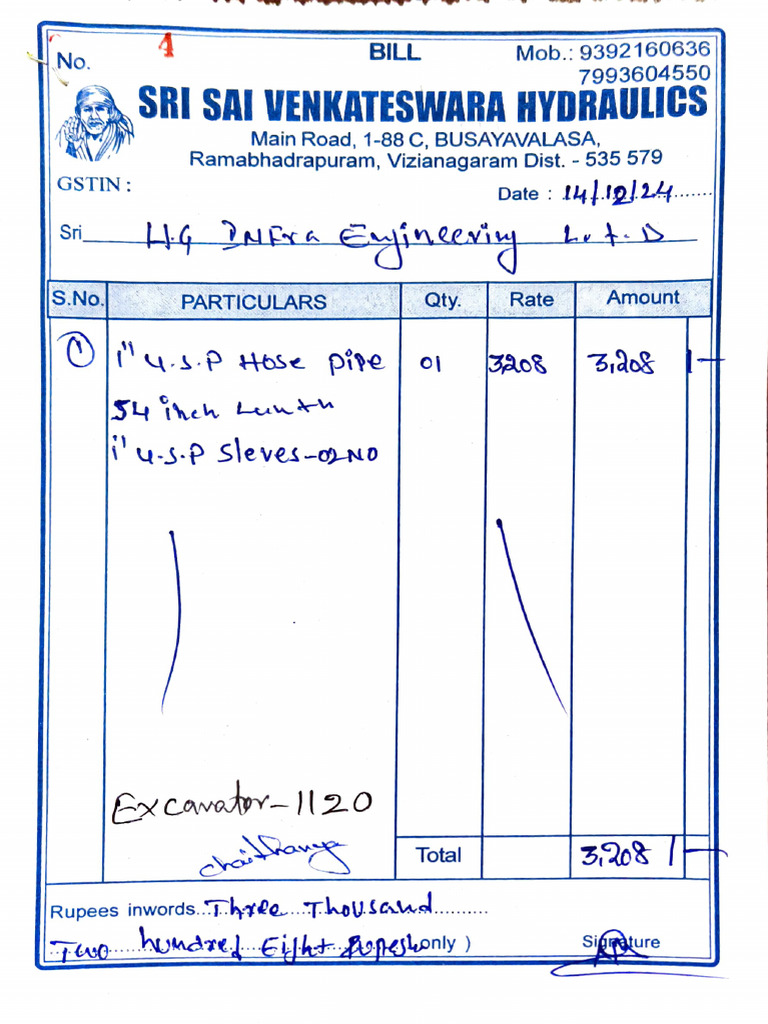 No. 4 BILL Mob.: 9392160636
7993604550
SRI SAI VENKATESWARA HYDRAULICS
Main Road, 1-88 C, BUSAYAVALASA,
Ramabhadrapuram, Vizianagaram Dist. - 535 579
GSTIN :
Date : 14/12/24
Sri H.G INFra Engineering L.t.D
S.No. PARTICULARS Qty. Rate Amount
1 1" U.S.P Hose pipe 01 3,208 3,208 /-
54 inch Lunth
1" U.S.P Sleves-02 NO
Excavator-1120
chaithanya
Total 3,208 /-
Rupees inwords Three Thousand
Two hundred Eight only ) Signature